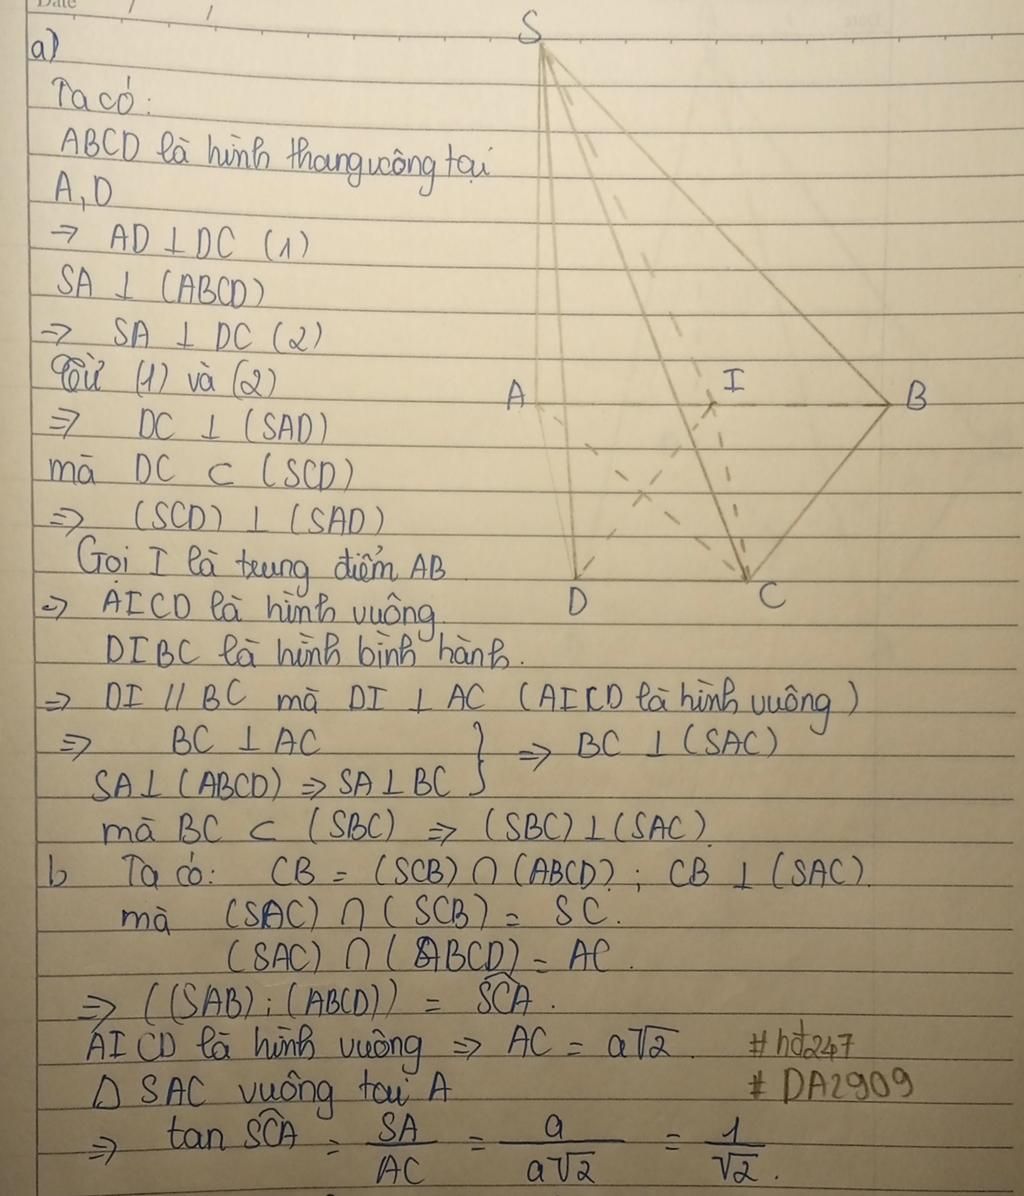 Date / /
a)
Ta có:
ABCD là hình thang vuông tại
A, D
⇒ AD ⊥ DC (1)
SA ⊥ (ABCD)
⇒ SA ⊥ DC (2)
Từ (1) và (2)
⇒ DC ⊥ (SAD)
mà DC ⊂ (SCD)
⇒ (SCD) ⊥ (SAD)
Gọi I là trung điểm AB
⇒ AICD là hình vuông
DIBC là hình bình hành.
⇒ DI // BC mà DI ⊥ AC (AICD là hình vuông)
⇒ BC ⊥ AC } ⇒ BC ⊥ (SAC)
SA ⊥ (ABCD) ⇒ SA ⊥ BC
mà BC ⊂ (SBC) ⇒ (SBC) ⊥ (SAC)
b Ta có: CB = (SCB) ∩ (ABCD); CB ⊥ (SAC).
mà (SAC) ∩ (SCB) = SC.
(SAC) ∩ (ABCD) = AC.
⇒ ((SAB); (ABCD)) = \widehat{SCA}.
AICD là hình vuông ⇒ AC = a√2.
Δ SAC vuông tại A
⇒ tan \widehat{SCA} = SA/AC = a/a√2 = 1/√2.
S
A
I
B
D
C
#hđ247
#DA2909